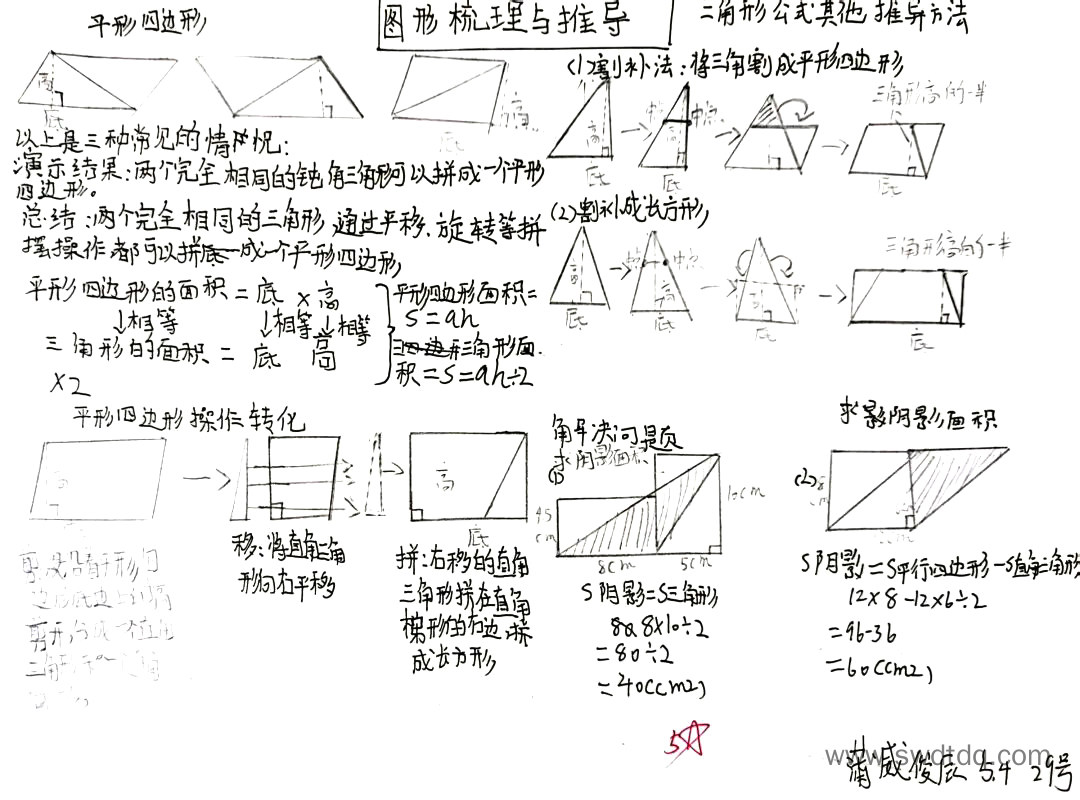 平形四边形
图形梳理与推导
三角形公式其他推导方法
高
底
高
底
以上是三种常见的情况:
演示结果:两个完全相同的钝角三角形可以拼成一个平形
四边形。
总结:两个完全相同的三角形,通过平移、旋转等拼
摆操作都可以拼成一个平形四边形,
平形四边形的面积=底×高
↓相等 ↓相等 ↓相等
三角形的面积=底 高
×2
平形四边形面积=
S=ah
三角形面
积=S=ah÷2
(1)割补法:将三角割成平形四边形
高
底
中点
高
中点
底
底
三角形高的一半
底
(2)割补成长方形,
高
底
中点
高
底
底
三角形高的一半
底
平形四边形操作转化
高
高
底
移:将直角三角
形向右平移
拼:右移的直角
三角形拼在直角
梯形的右边,拼
成长方形
解决问题
求阴影面积
(1)
10cm
8cm
5cm
S阴影=S三角形
8×10÷2
=80÷2
=40(cm2)
求影阴影面积
(2)
S阴影=S平行四边形-S直角三角形
12×8-12×6÷2
=96-36
=60(cm2)
5☆
www.swdtdq.com
5.4 29号